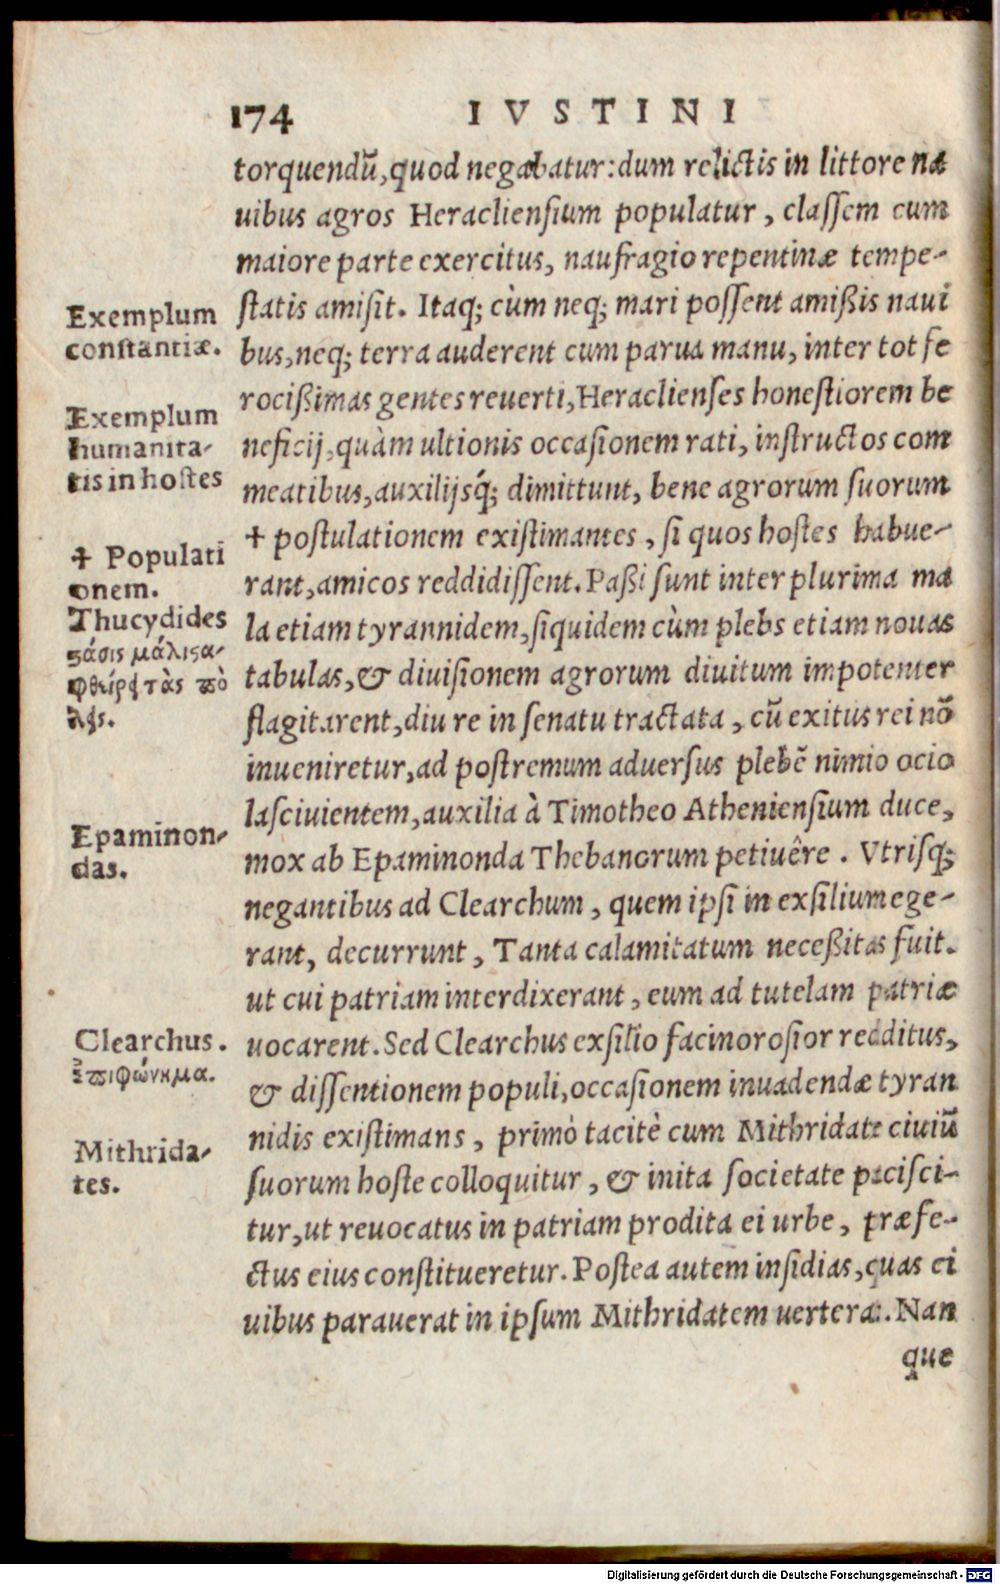 174 IVSTINI
torquendũ, quod negabatur: dum relictis in littore na
uibus agros Heracliensium populatur, classem cum
maiore parte exercitus, naufragio repentinæ tempe-
statis amisit. Itaq; cùm neq; mari possent amißis naui
bus, neq; terra auderent cum parua manu, inter tot fe
rocißimas gentes reuerti, Heraclienses honestiorem be
neficij, quàm ultionis occasionem rati, instructos com
meatibus, auxilijsq́; dimittunt, bene agrorum suorum
✢ postulationem existimantes, si quos hostes habue-
rant, amicos reddidissent. Paßi sunt inter plurima ma
la etiam tyrannidem, siquidem cùm plebs etiam nouas
tabulas, & diuisionem agrorum diuitum impotenter
flagitarent, diu re in senatu tractata, cũ exitus rei nõ
inueniretur, ad postremum aduersus plebẽ nimio ocio
lasciuientem, auxilia à Timotheo Atheniensium duce,
mox ab Epaminonda Thebanorum petiuêre. Vtrisq;
negantibus ad Clearchum, quem ipsi in exsilium ege-
rant, decurrunt, Tanta calamitatum neceßitas fuit.
ut cui patriam interdixerant, eum ad tutelam patriæ
uocarent. Sed Clearchus exsilio facinorosior redditus,
& dissentionem populi, occasionem inuadendæ tyran
nidis existimans, primò tacitè cum Mithridate ciuiũ
suorum hoste colloquitur, & inita societate pacisci-
tur, ut reuocatus in patriam prodita ei urbe, præfe-
ctus eius constitueretur. Postea autem insidias, quas ci
uibus parauerat in ipsum Mithridatem uerterat. Nan
que
Exemplum
constantiæ.
Exemplum
humanita-
tis in hostes
✢ Populati
onem.
Thucydides
ϛάσις μάλιϛα
φθείρει τὰς πό
λεις.
Epaminon-
das.
Clearchus.
ἐπιφώνημα.
Mithrida-
tes.
Digitalisierung gefördert durch die Deutsche Forschungsgemeinschaft - DFG